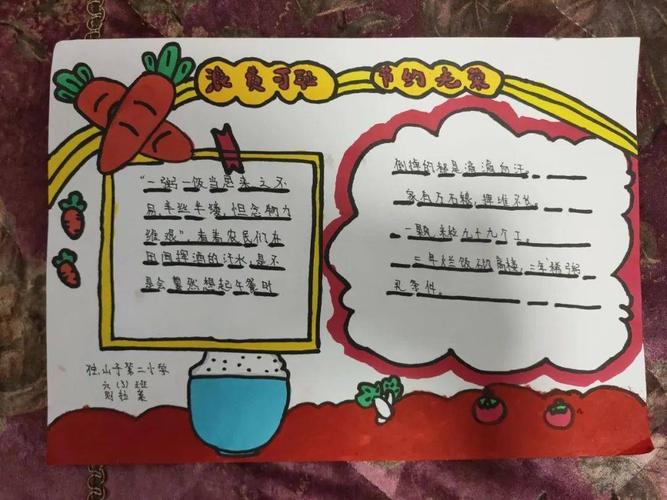 浪费可耻 节约光荣
"一粥一饭当思来之不
易半丝半缕,恒念物力
维艰",看着农民们在
田间挥洒的汗水,是不
是会蓦然想起午餐时
倒掉的都是滴滴血汗。
家有万石粮,挥维不长。
一颗米粒九十九个工。
三年烂饭砌高楼,三年稀粥
独山子第二小学
六(3)班